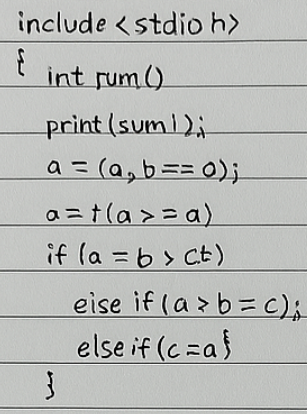 include <stdio h>
{ int rum()
print(sum1);
a = (a, b == 0);
a = t(a > = a)
if (a = b > ct)
eise if (a > b = c);
else if (c = a}
}